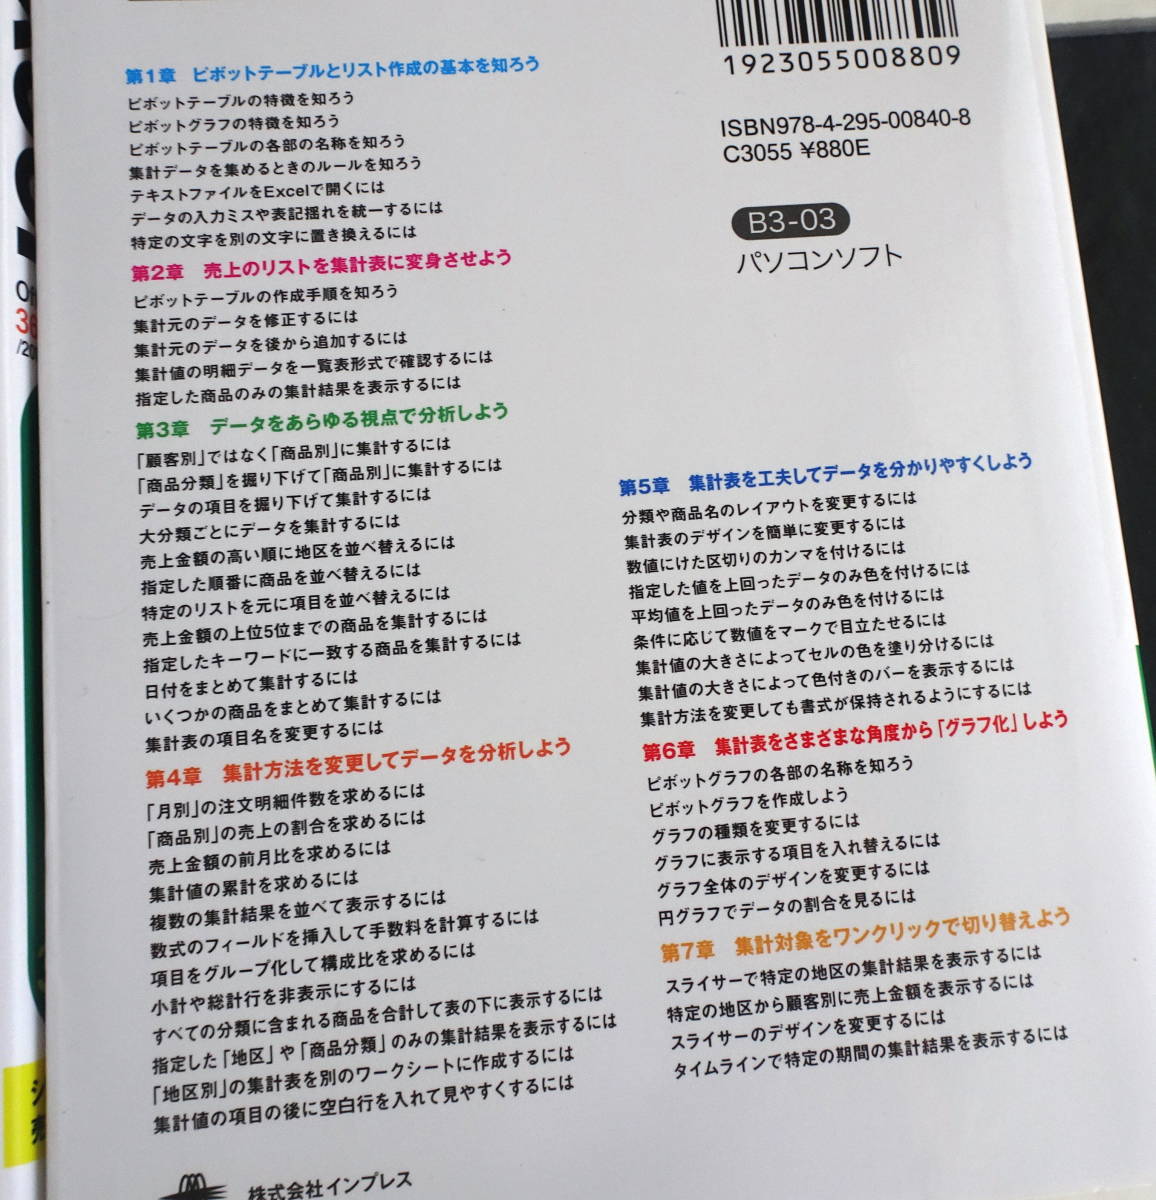 1923055008809
ISBN978-4-295-00840-8
C3055 ¥880E
B3-03
パソコンソフト
第1章 ピボットテーブルとリスト作成の基本を知ろう
ピボットテーブルの特徴を知ろう
ピボットグラフの特徴を知ろう
ピボットテーブルの各部の名称を知ろう
集計データを集めるときのルールを知ろう
テキストファイルをExcelで開くには
データの入力ミスや表記揺れを統一するには
特定の文字を別の文字に置き換えるには
第2章 売上のリストを集計表に変身させよう
ピボットテーブルの作成手順を知ろう
集計元のデータを修正するには
集計元のデータを後から追加するには
集計値の明細データを一覧表形式で確認するには
指定した商品のみの集計結果を表示するには
第3章 データをあらゆる視点で分析しよう
「顧客別」ではなく「商品別」に集計するには
「商品分類」を掘り下げて「商品別」に集計するには
データの項目を掘り下げて集計するには
大分類ごとにデータを集計するには
売上金額の高い順に地区を並べ替えるには
指定した順番に商品を並べ替えるには
特定のリストを元に項目を並べ替えるには
売上金額の上位5位までの商品を集計するには
指定したキーワードに一致する商品を集計するには
日付をまとめて集計するには
いくつかの商品をまとめて集計するには
集計表の項目名を変更するには
第4章 集計方法を変更してデータを分析しよう
「月別」の注文明細件数を求めるには
「商品別」の売上の割合を求めるには
売上金額の前月比を求めるには
集計値の累計を求めるには
複数の集計結果を並べて表示するには
数式のフィールドを挿入して手数料を計算するには
項目をグループ化して構成比を求めるには
小計や総計行を非表示にするには
すべての分類に含まれる商品を合計して表の下に表示するには
指定した「地区」や「商品分類」のみの集計結果を表示するには
「地区別」の集計表を別のワークシートに作成するには
集計値の項目の後に空白行を入れて見やすくするには
第5章 集計表を工夫してデータを分かりやすくしよう
分類や商品名のレイアウトを変更するには
集計表のデザインを簡単に変更するには
数値にけた区切りのカンマを付けるには
指定した値を上回ったデータのみ色を付けるには
平均値を上回ったデータのみ色を付けるには
条件に応じて数値をマークで目立たせるには
集計値の大きさによってセルの色を塗り分けるには
集計値の大きさによって色付きのバーを表示するには
集計方法を変更しても書式が保持されるようにするには
第6章 集計表をさまざまな角度から「グラフ化」しよう
ピボットグラフの各部の名称を知ろう
ピボットグラフを作成しよう
グラフの種類を変更するには
グラフに表示する項目を入れ替えるには
グラフ全体のデザインを変更するには
円グラフでデータの割合を見るには
第7章 集計対象をワンクリックで切り替えよう
スライサーで特定の地区の集計結果を表示するには
特定の地区から顧客別に売上金額を表示するには
スライサーのデザインを変更するには
タイムラインで特定の期間の集計結果を表示するには
株式会社インプレス